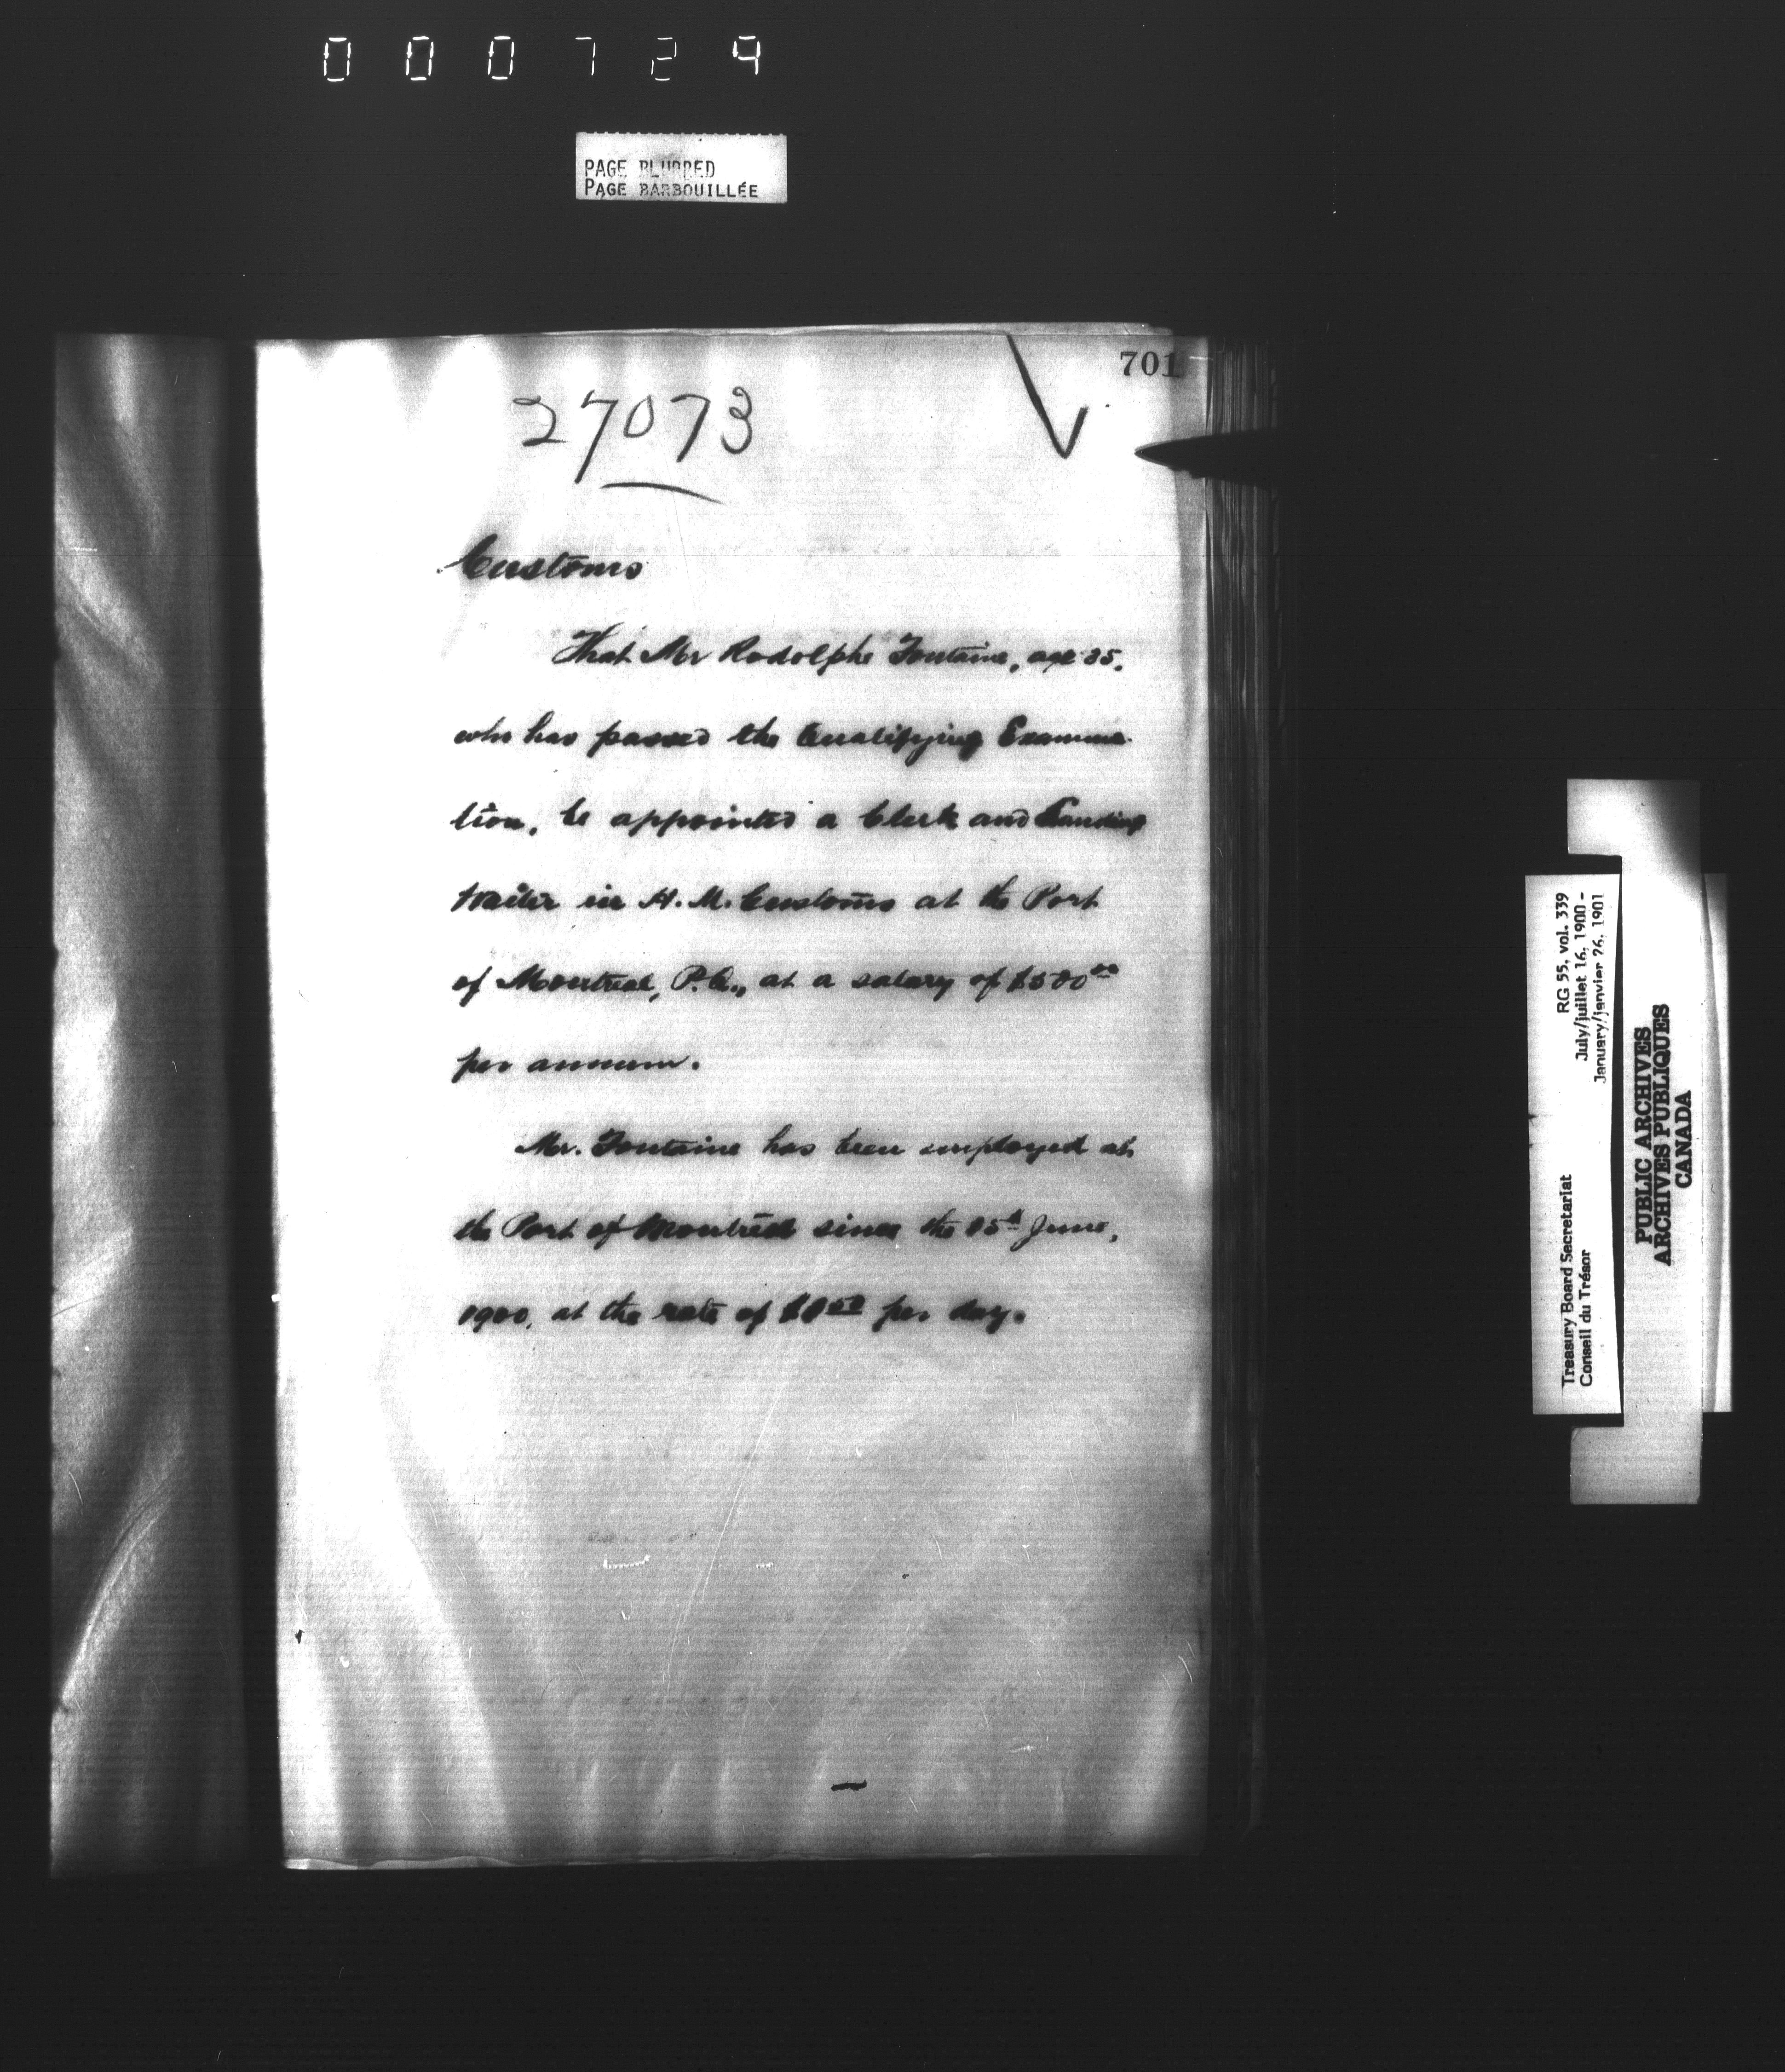 000724
PAGE BLURRED
PAGE BARBOUILLÉE
701
27073
Customs
That Mr Rodolphe Fontaine, age 35,
who has passed the Qualifying Examina-
tion, be appointed a Clerk and Landing
Waiter in H. M. Customs at the Port
of Montreal, P.Q., at a salary of $500 00
per annum.
Mr. Fontaine has been employed at
the Port of Montreal since the June,
1900, at the rate of per day.
RG 55, vol. 339
July/juillet 16, 1900 -
January/janvier 26, 1901
Treasury Board Secretariat
Conseil du Trésor
PUBLIC ARCHIVES
ARCHIVES PUBLIQUES
CANADA